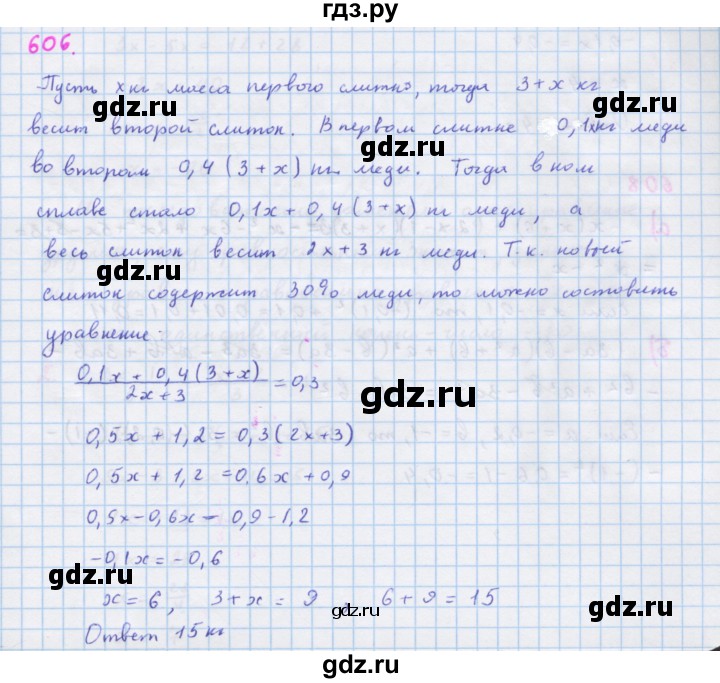 гдз.ру
606.
Пусть x кг масса первого слитка, тогда 3+x кг
весит второй слиток. В первом слитке 0,1x кг меди
во втором 0,4(3+x) кг меди. Тогда в ном
сплаве стало 0,1x+0,4(3+x) кг меди, а
весь слиток весит 2x+3 кг меди. Т.к. новый
слиток содержит 30% меди, то можно составить
уравнение:
(0,1x + 0,4(3+x))/(2x+3) = 0,3
0,5x + 1,2 = 0,3(2x+3)
0,5x + 1,2 = 0.6x + 0,9
0,5x-0,6x = 0,9-1,2
-0,1x = -0,6
x = 6, 3+x = 9 6+9 = 15
Ответ 15 кг
gdz.ru
gdz.ru
gdz.ru
gdz.ru
gdz.ru
gdz.ru
gdz.ru
gdz.ru
gdz.ru
gdz.ru
gdz.ru